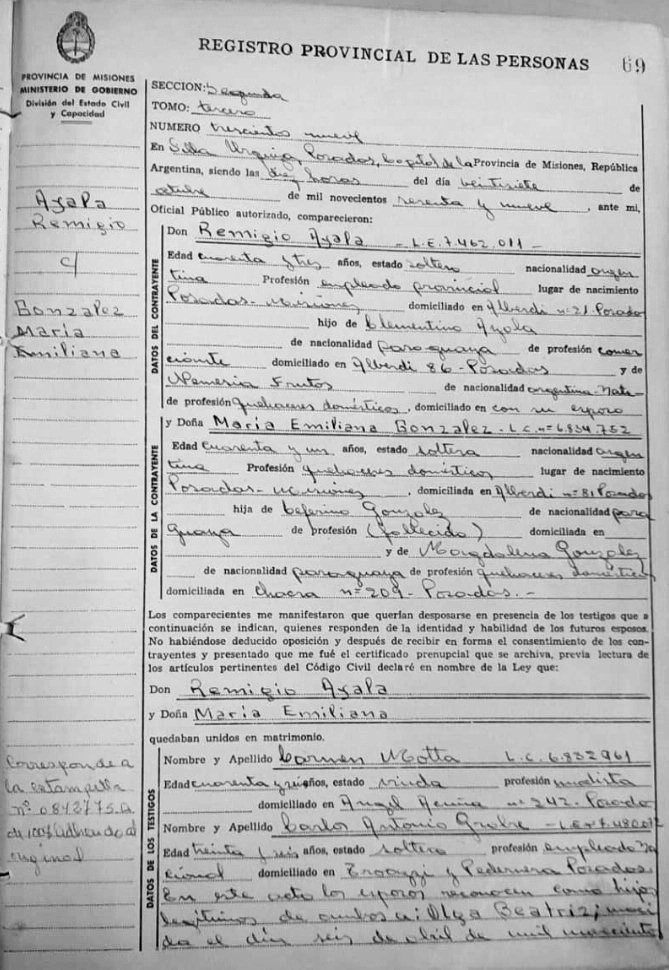 REGISTRO PROVINCIAL DE LAS PERSONAS
69
PROVINCIA DE MISIONES
MINISTERIO DE GOBIERNO
División del Estado Civil
y Capacidad
Ayala
Remigio
c/
Gonzalez
María
Emiliana
Corresponde a
la estampilla
nº 0842775.A
de 100% Adherida al
original
SECCION: Segunda
TOMO: tercero
NUMERO trescientos nueve
En Villa Urquiza, Posadas, Capital de la Provincia de Misiones, República
Argentina, siendo las diez horas del día veintisiete de
octubre de mil novecientos sesenta y nueve, ante mi,
Oficial Público autorizado, comparecieron:
DATOS DEL CONTRAYENTE
Don Remigio Ayala - L.E. 7.462.011 -
Edad cuarenta y tres años, estado soltero nacionalidad argen
tina Profesión empleado provincial lugar de nacimiento
Posadas - Misiones domiciliado en Alberdi nº 21. Posadas
hijo de Clementino Ayala
de nacionalidad paraguaya de profesión comer
ciante domiciliado en Alberdi 86 - Posadas y de
Nemesia Frutos de nacionalidad argentina - Nata-
de profesión quehaceres domésticos, domiciliado en con su esposo
DATOS DE LA CONTRAYENTE
y Doña María Emiliana Gonzalez - L.C. nº 6.834.752
Edad cuarenta y un, años, estado soltera nacionalidad argen
tina Profesión quehaceres domésticos lugar de nacimiento
Posadas - Misiones, domiciliada en Alberdi nº 81 Posadas
hija de Ceferino Gonzalez de nacionalidad para
guaya de profesión (fallecido) domiciliada en
y de Magdalena Gonzalez
de nacionalidad paraguaya de profesión quehaceres domésticos
domiciliada en Chacra nº 209 - Posadas. -
Los comparecientes me manifestaron que querían desposarse en presencia de los testigos que a
continuación se indican, quienes responden de la identidad y habilidad de los futuros esposos.
No habiéndose deducido oposición y después de recibir en forma el consentimiento de los con-
trayentes y presentado que me fué el certificado prenupcial que se archiva, previa lectura de
los artículos pertinentes del Código Civil declaré en nombre de la Ley que:
Don Remigio Ayala
y Doña María Emiliana
quedaban unidos en matrimonio.
DATOS DE LOS TESTIGOS
Nombre y Apellido Carmen Motta L.C. 6.832961
Edad cuarenta y seis años, estado viuda profesión modista
domiciliado en Angel Acuña nº 242 - Posadas
Nombre y Apellido Carlos Antonio
Edad treinta y seis años, estado soltero profesión empleado na
cional domiciliado en y Pedernera Posadas
En este acto los esposos reconocen como hijos
legítimos de ambos a: Olga Beatriz; naci
da el día seis de abril de mil novecientos